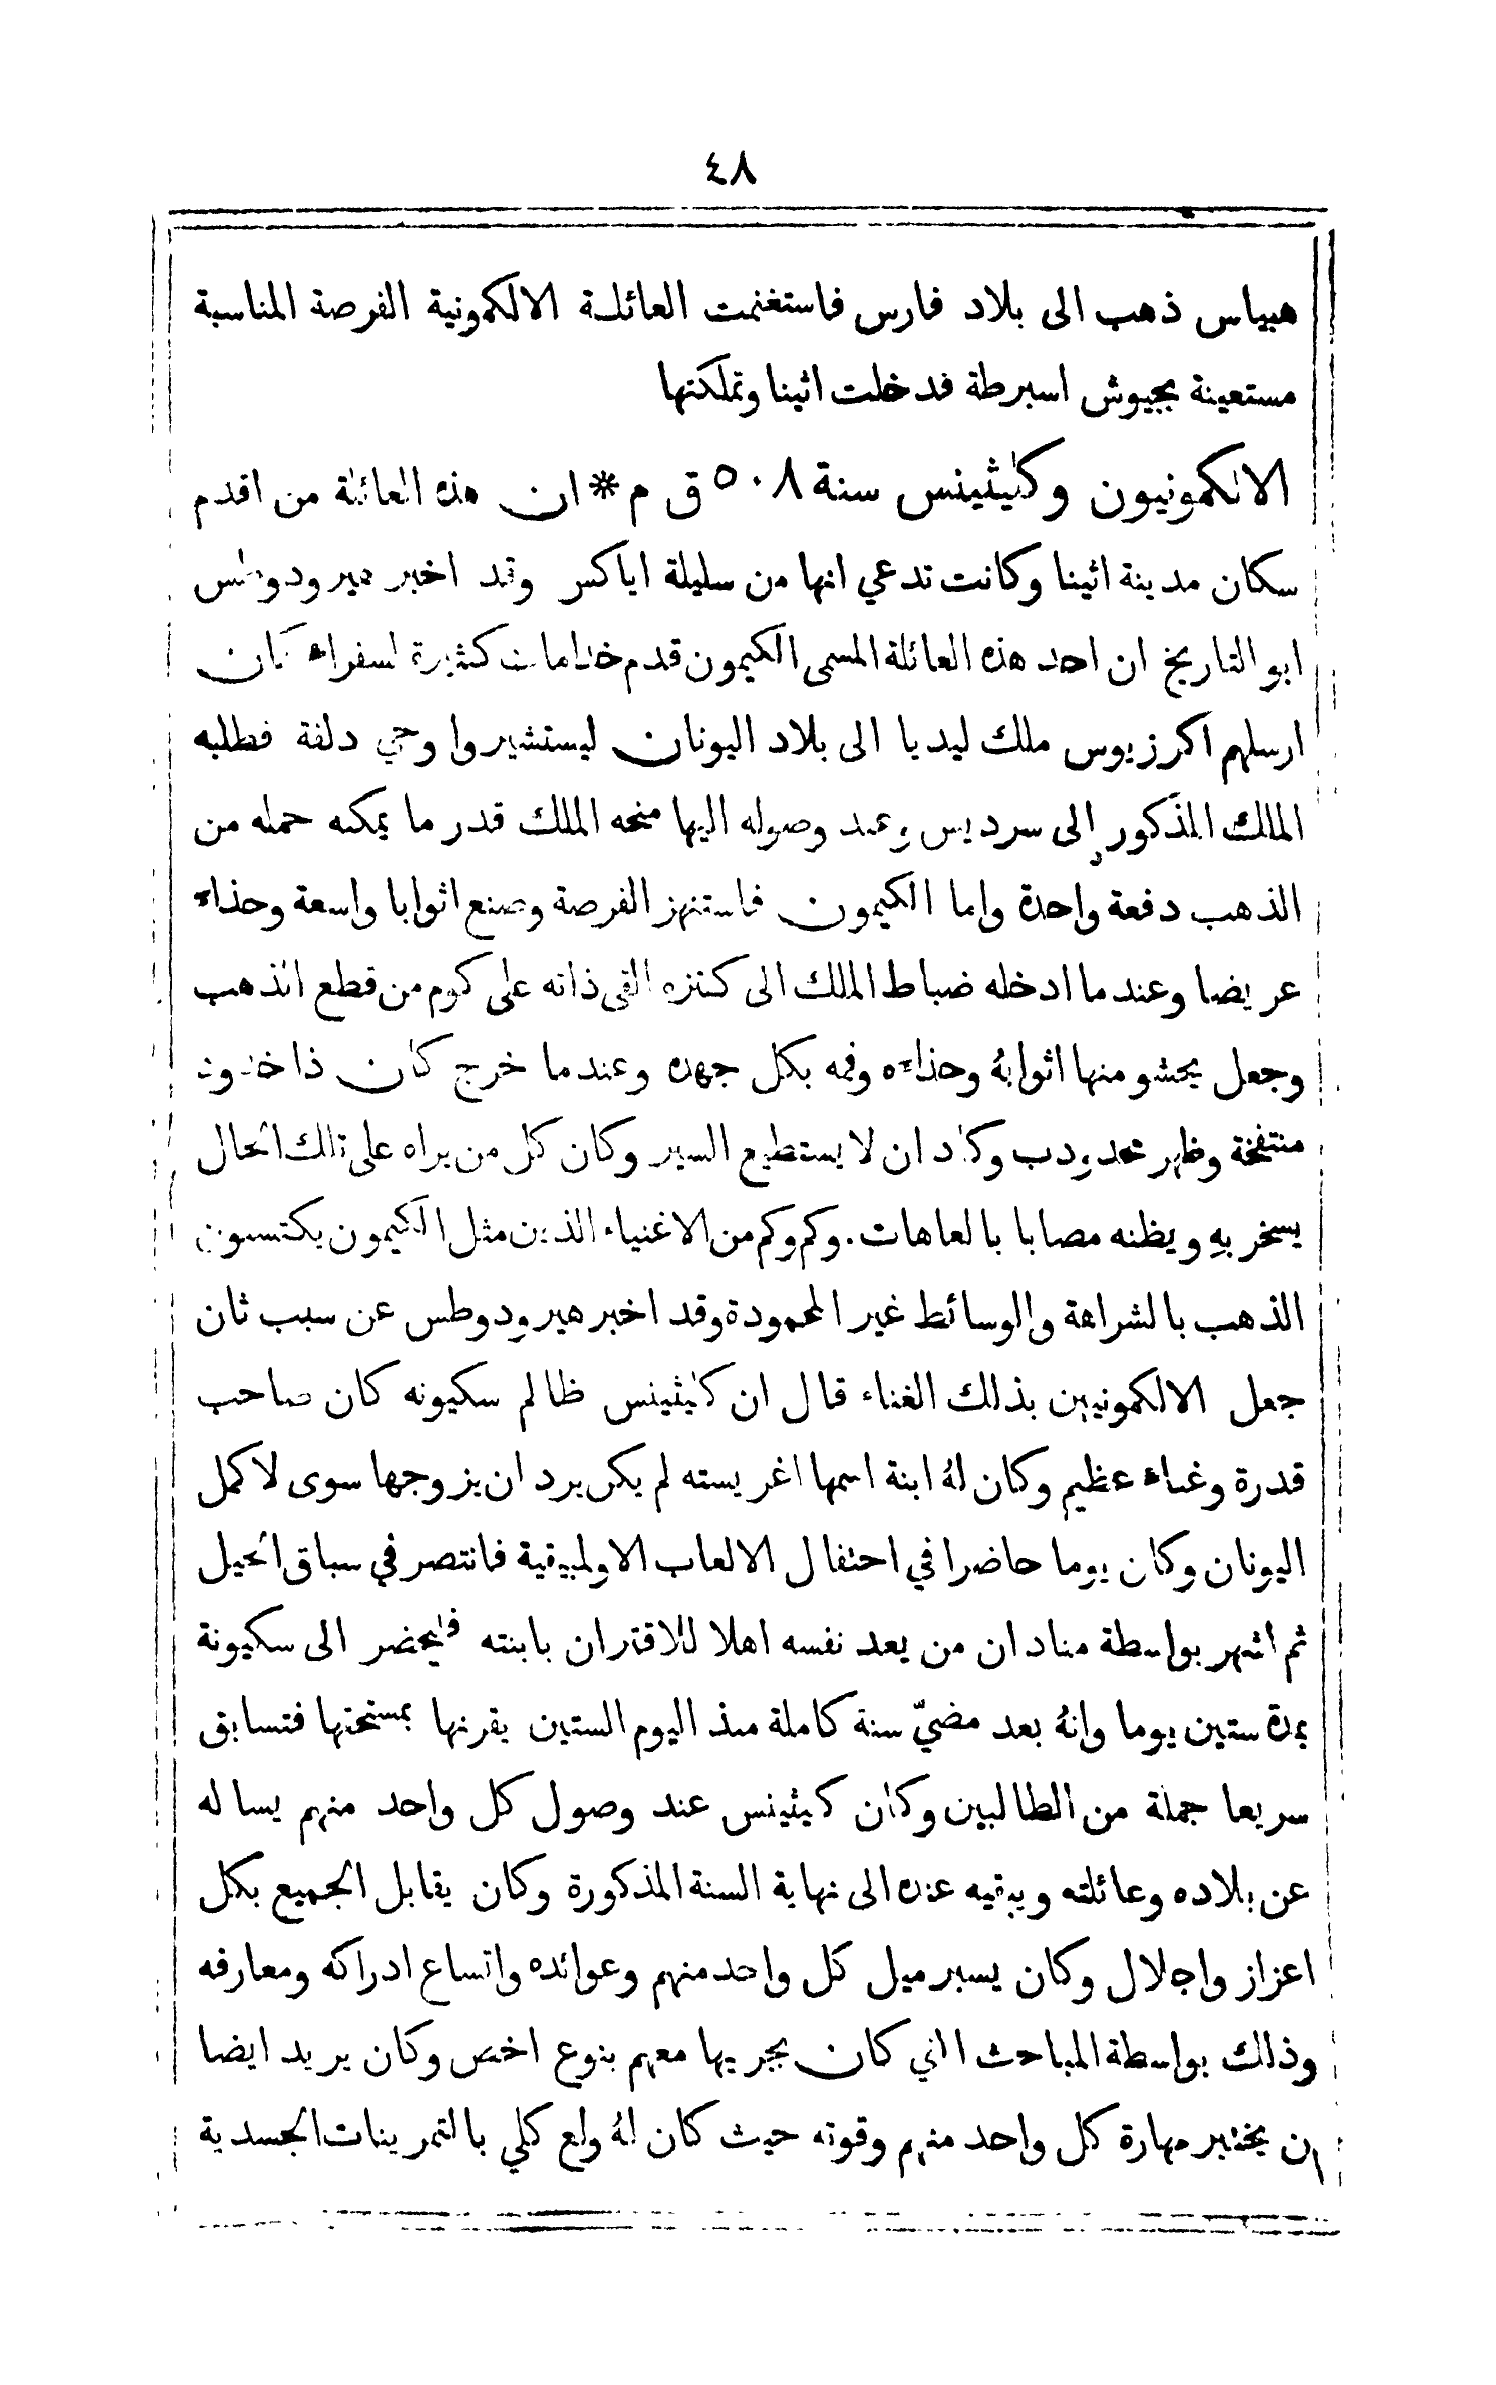 ٤٨
هبياس ذهب الى بلاد فارس فاستغنمت العائلة الالكمونية الفرصة المناسبة
مستعينة بجيوش اسبرطة فدخلت اثينا وتملكتها
الالكمونيون وكليثينس سنة ٥٠٨ ق م * ان هذه العائلة من اقدم
سكان مدينة اثينا وكانت تدعي انها من سليلة اياكس وقد اخبر هيرودوطس
ابو التاريخ ان احد هذه العائلة المسمى الكيمون قدم خدامات كثيرة لسفراء كان
ارسلهم اكرزيوس ملك ليديا الى بلاد اليونان ليستشيروا وحي دلفة فطلبه
الملك المذكور إلى سرديس وعند وصوله اليها منحه الملك قدر ما يمكنه حمله من
الذهب دفعة واحدة واما الكيمون فاستنهز الفرصة وصنع اثوابا واسعة وحذاء
عريضا وعندما ادخله ضباط الملك الى كنزه القى ذاته على كوم من قطع الذهب
وجعل يحشو منها اثوابهُ وحذاءه وفمه بكل جهده وعندما خرج كان ذا خدود
منتفخة وظهر محدودب وكاد ان لا يستطيع السير وكان كل من يراه على تلك الحال
يسخر بهِ ويظنه مصابا بالعاهات. وكم وكم من الاغنياء الذين مثل الكيمون يكتسبون
الذهب بالشراهة والوسائط غير المحمودة وقد اخبر هيرودوطس عن سبب ثان
جعل الالكمونيين بذلك الغناء قال ان كليثينس ظالم سكيونه كان صاحب
قدرة وغناء عظيم وكان لهُ ابنة اسمها اغريسته لم يكن يرد ان يزوجها سوى لاكمل
اليونان وكان يوما حاضرا في احتفال الالعاب الاولمبيقية فانتصر في سباق الخيل
ثم اشهر بواسطة مناد ان من يعد نفسه اهلا للاقتران بابنته فليحضر الى سكيونة
بمدة ستين يوما وانهُ بعد مضيّ سنة كاملة منذ اليوم الستين يقرنها بمستحقها فتسابق
سريعا جملة من الطالبين وكان كليثينس عند وصول كل واحد منهم يساله
عن بلاده وعائلته ويبقيه عنده الى نهاية السنة المذكورة وكان يقابل الجميع بكل
اعزاز واجلال وكان يسبر ميل كل واحد منهم وعوائده واتساع ادراكه ومعارفه
وذلك بواسطة المباحث التي كان يجريها معهم بنوع اخص وكان يريد ايضا
ان يختبر مهارة كل واحد منهم وقوته حيث كان لهُ ولع كلي بالتمرينات الجسدية